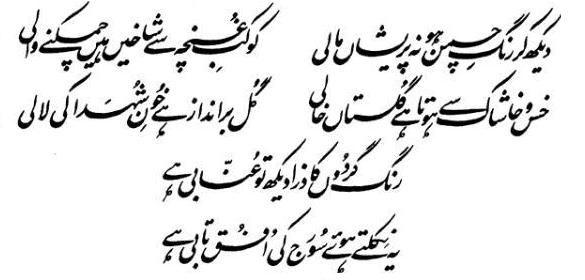 دیکھ کر رنگِ چمن ہو نہ پریشاں مالی
کوکبِ غنچہ سے شاخیں ہیں چمکنے والی
خس و خاشاک سے ہوتا ہے گلستاں خالی
گل بر انداز ہے خونِ شہدا کی لالی
رنگ گردوں کا ذرا دیکھ تو عنّابی ہے
یہ نکلتے ہوئے سورج کی افق تابی ہے